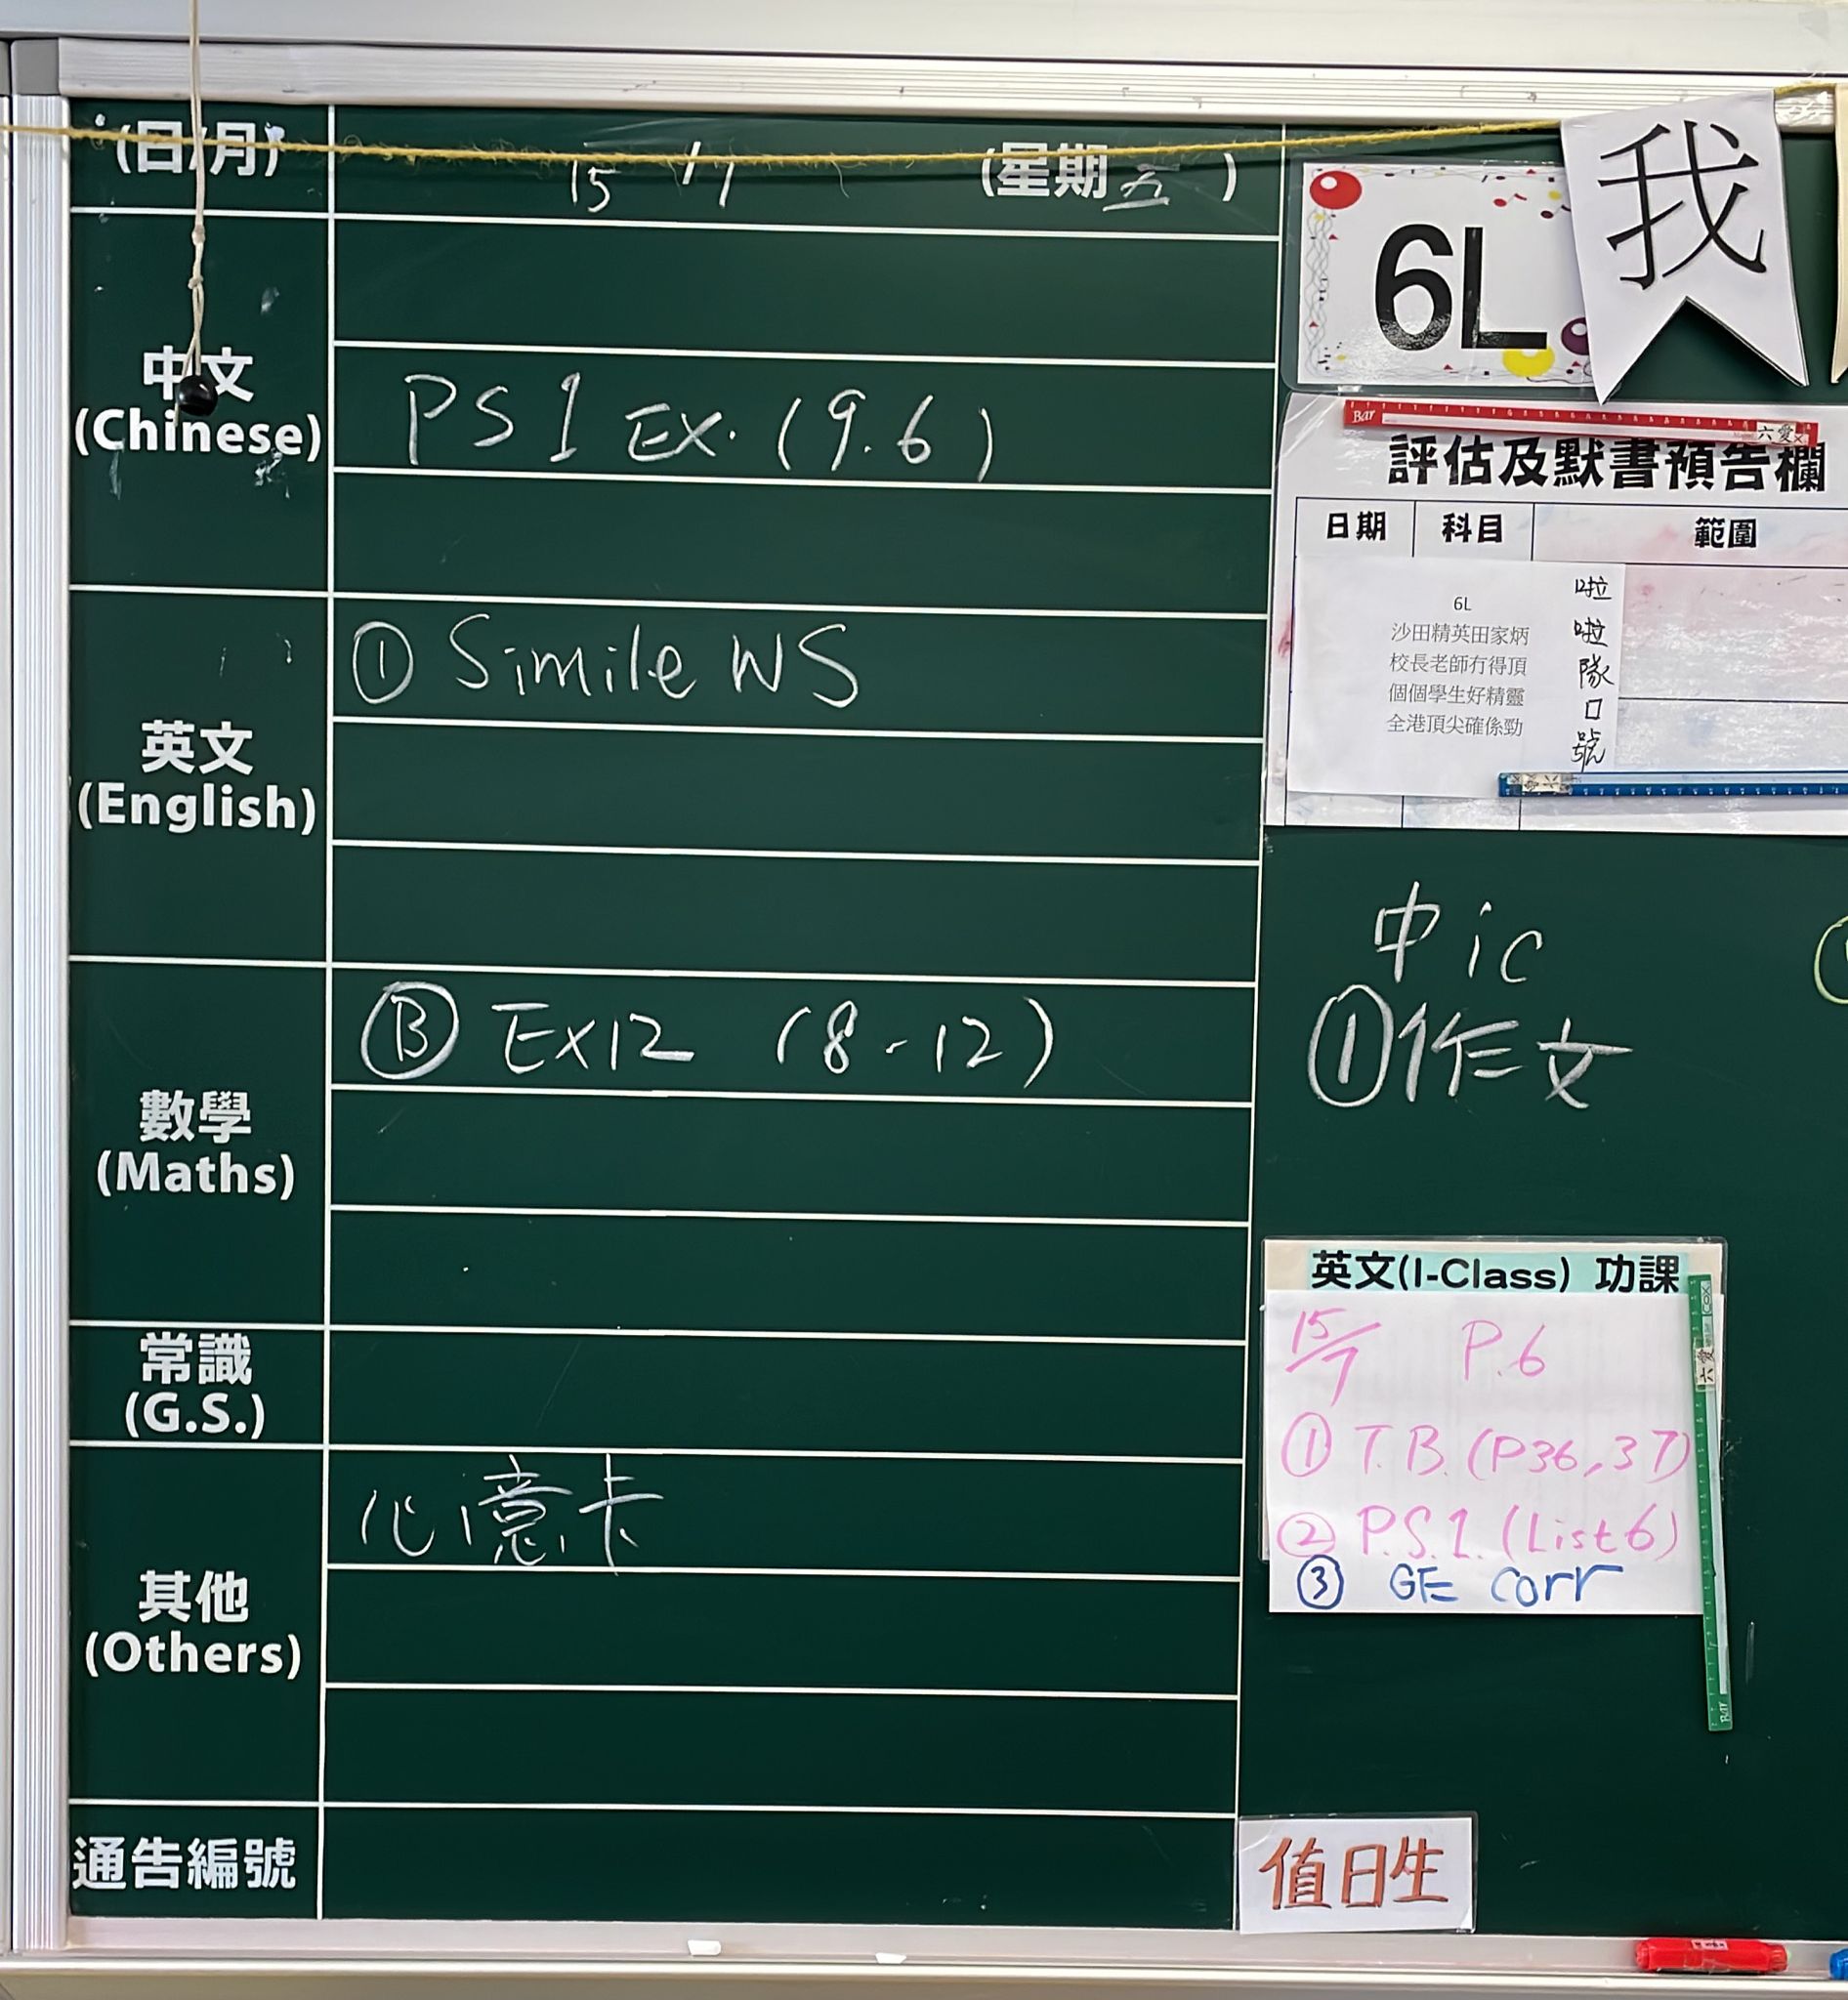 (日/月) 15 / 7 (星期五)
中文
(Chinese)
PSI EX. (9.6)
英文
(English)
① Simile WS
數學
(Maths)
Ⓑ Ex12 (8-12)
常識
(G.S.)
其他
(Others)
心意卡
通告編號
6L
我
Bar
六愛
評估及默書預告欄
日期 科目 範圍
6L
沙田精英田家炳
校長老師冇得頂
個個學生好精靈
全港頂尖確係勁
啦啦隊口號
中 ic
①作文
英文(I-Class) 功課
15/7 P.6
① T.B. (P36,37)
② P.S.I. (List6)
③ GE Corr
六愛
Bar
值日生